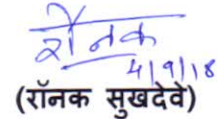 रौनक
4/9/18
(रॉनक सुखदेवे)